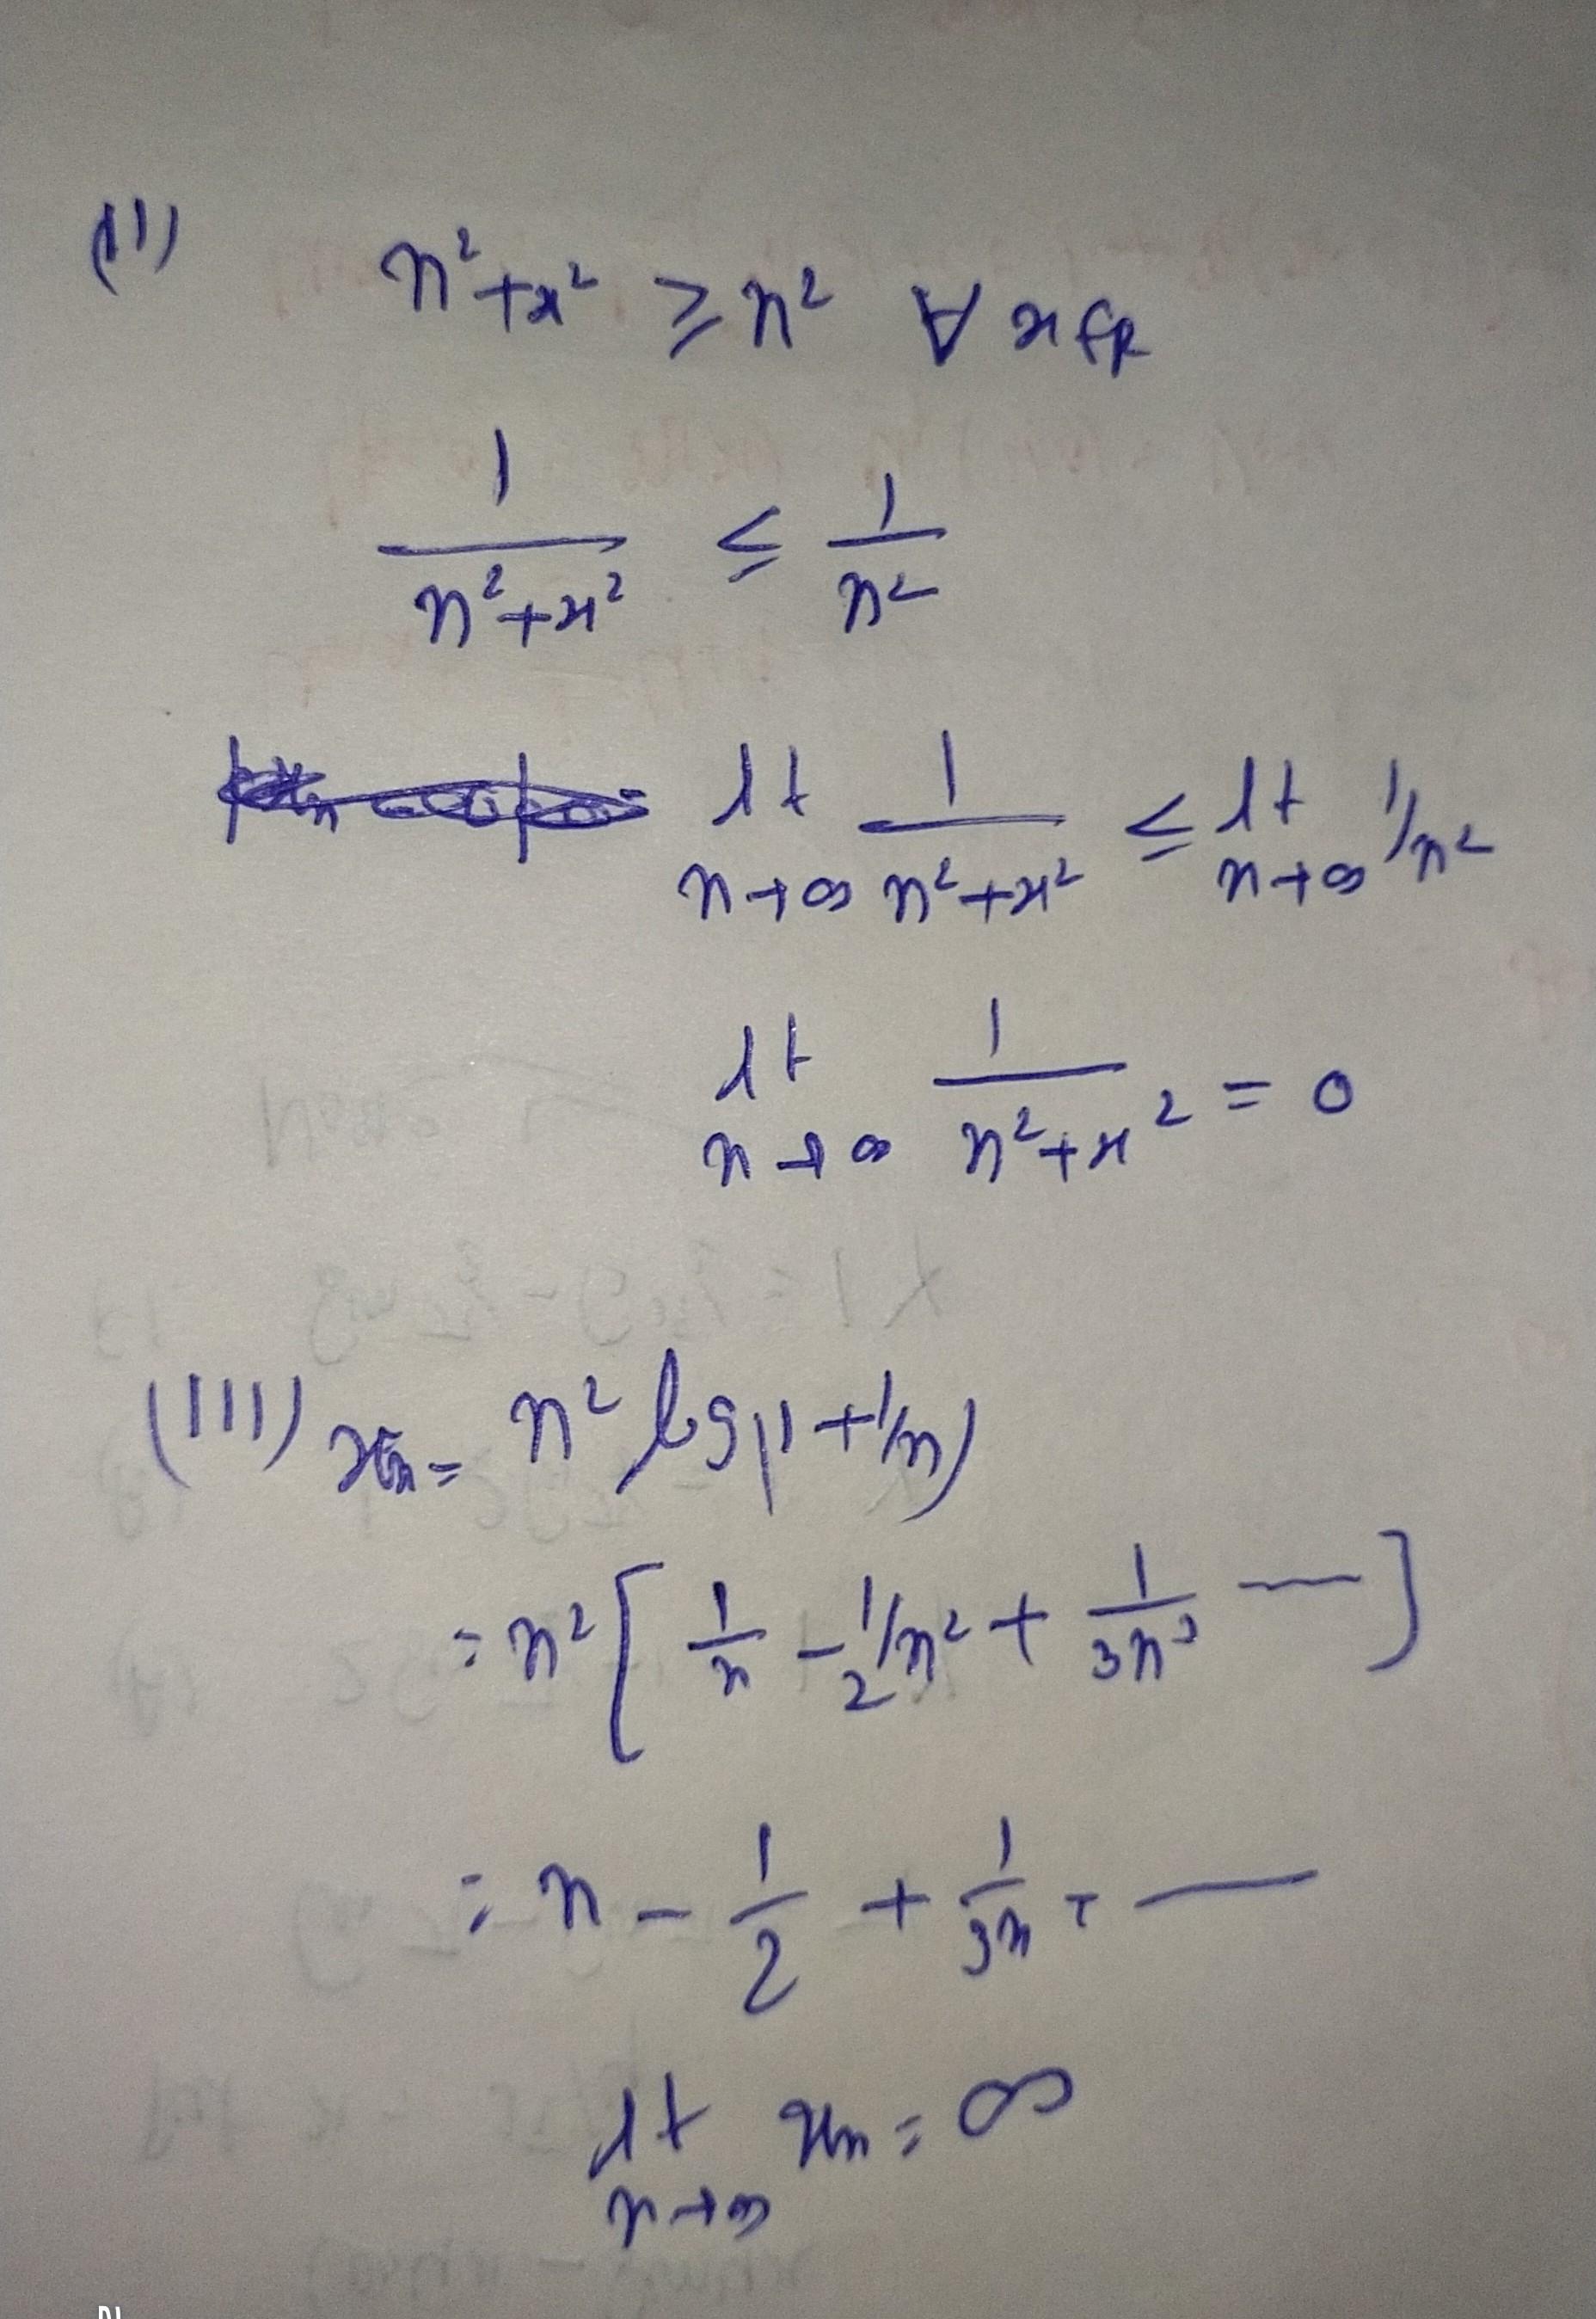 (II) n²+x² ≥ n² ∀ x ∈ R
1/(n²+x²) ≤ 1/n²
lt n→∞ 1/(n²+x²) ≤ lt n→∞ 1/n²
lt n→∞ 1/(n²+x²) = 0
(III) xₙ = n² log(1+1/n)
= n² [ 1/n - 1/2n² + 1/3n³ — ]
= n - 1/2 + 1/3n + —
lt n→∞ xₙ = ∞